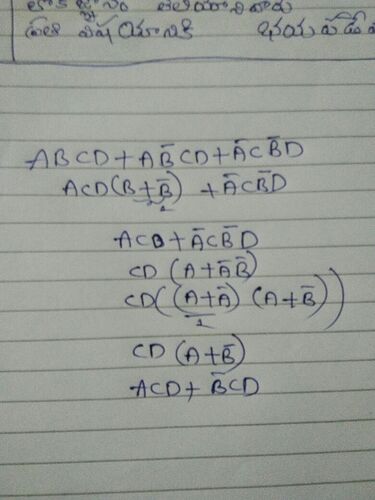 ప్రతి విషయానికి భయపడే
ABCD + AB̅CD + A̅CB̅D
ACD(B+B̅) + A̅CB̅D
1
ACD + A̅CB̅D
CD (A+A̅B̅)
CD((A+A̅) (A+B̅))
1
CD (A+B̅)
ACD + B̅CD